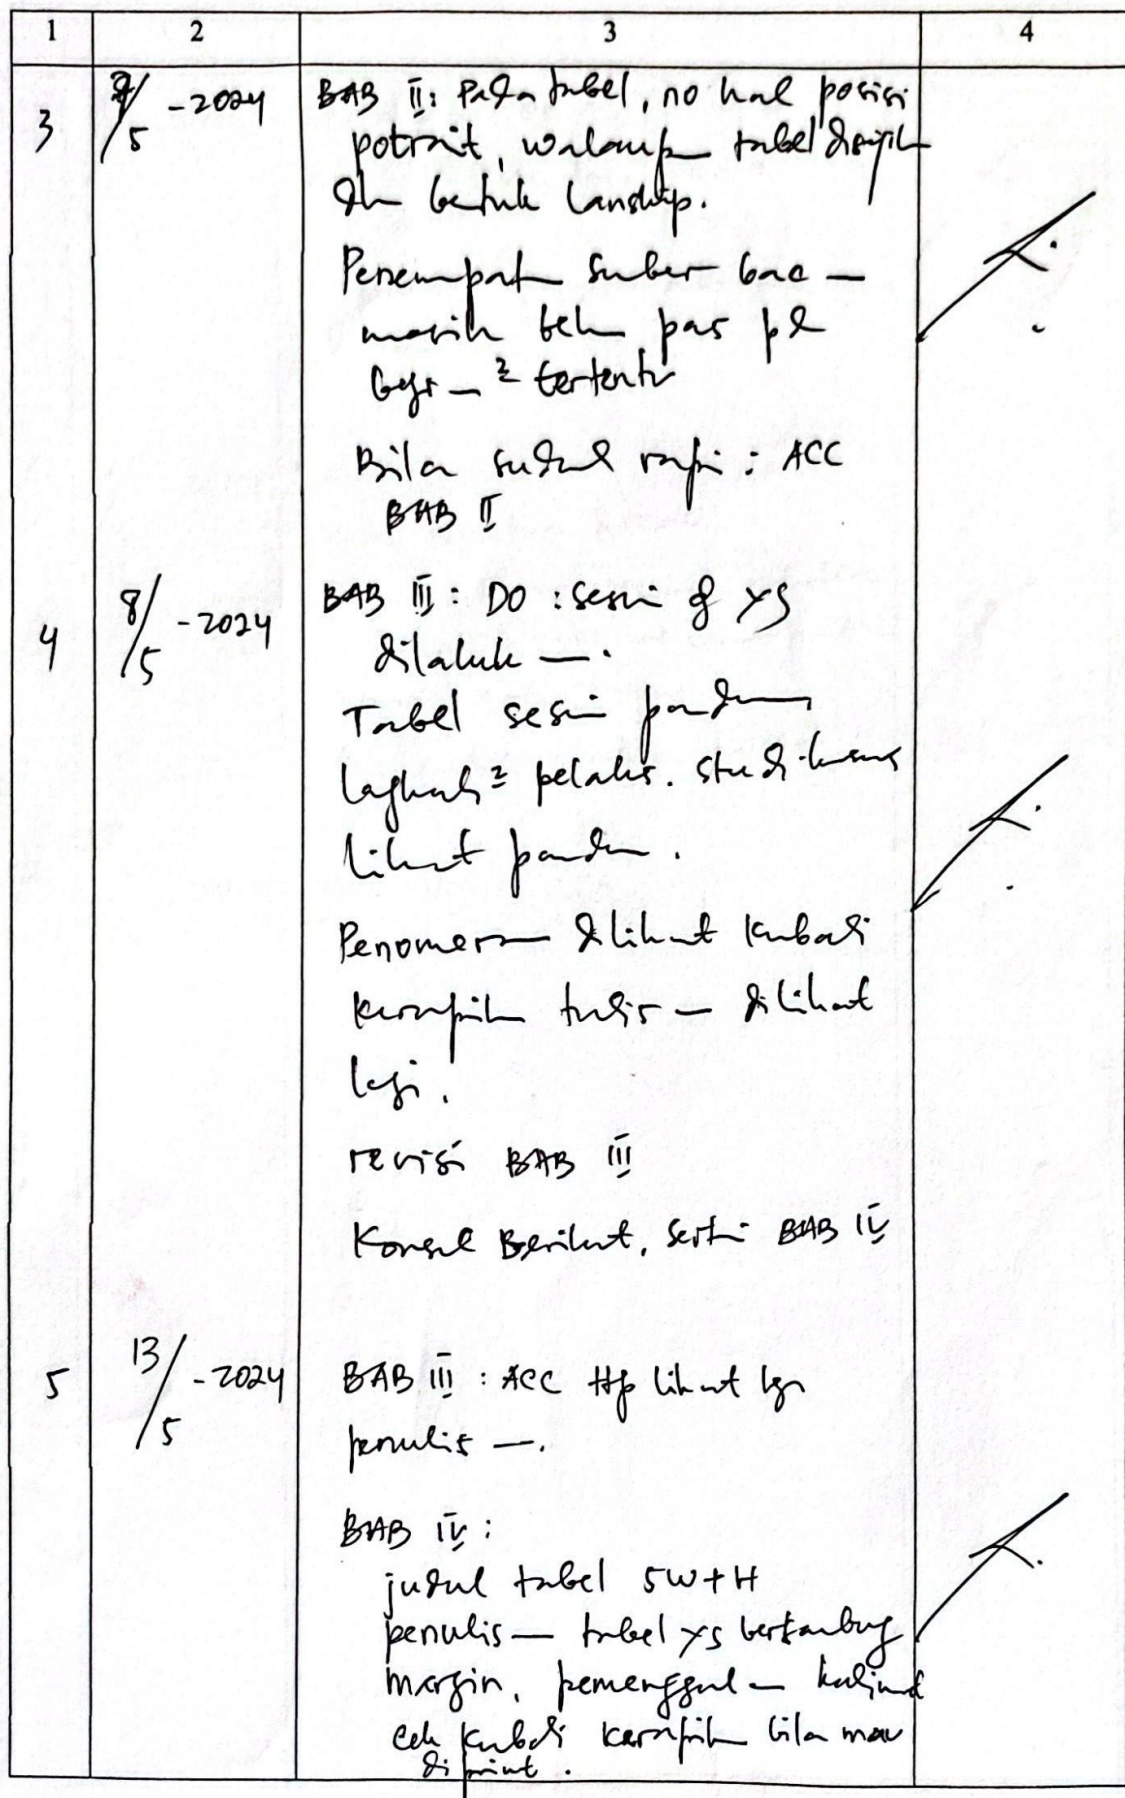 1 2 3 4
3 7/5 -2024 BAB II: Pada tabel, no hal posisi
potrait, walaup— tabel disajik—
dlm bentuk Lanskip.
Penempat— sumber baca —
masih belum pas pd
bagi—² tertentu
Bila sudah rapi : ACC
BAB II
4 8/5 -2024 BAB III : DO : sesuai dg yg
dilakuk —.
Tabel sesuai panduan
langkah² pelaks. studi kasus
lihat panduan.
Penomer— dilihat kembali
kerapih— tulis — dilihat
lagi.
revisi BAB III
Konsul Berikut, serta BAB IV
5 13/5 -2024 BAB III : ACC ttp lihat lgi
penulis —.
BAB IV :
judul tabel 5W+H
penulis — tabel yg bersambung
margin, pemenggal— kalimat
cek kembali kerapih— bila mau
di print.